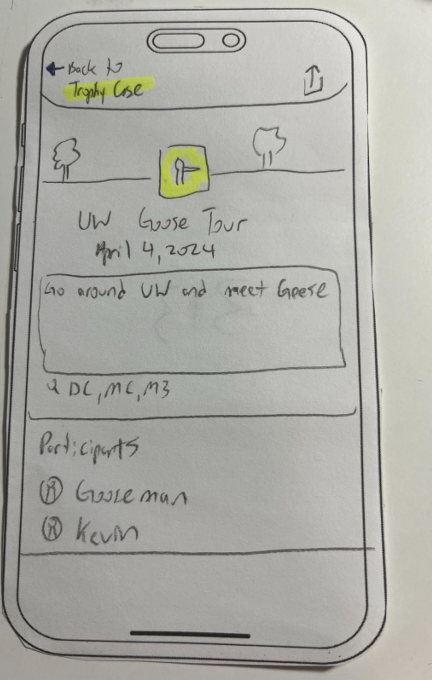 Back to
Trophy Case
UW Goose Tour
April 4, 2024
Go around UW and meet Geese
DC, MC, M3
Participants
Goose man
Kevin